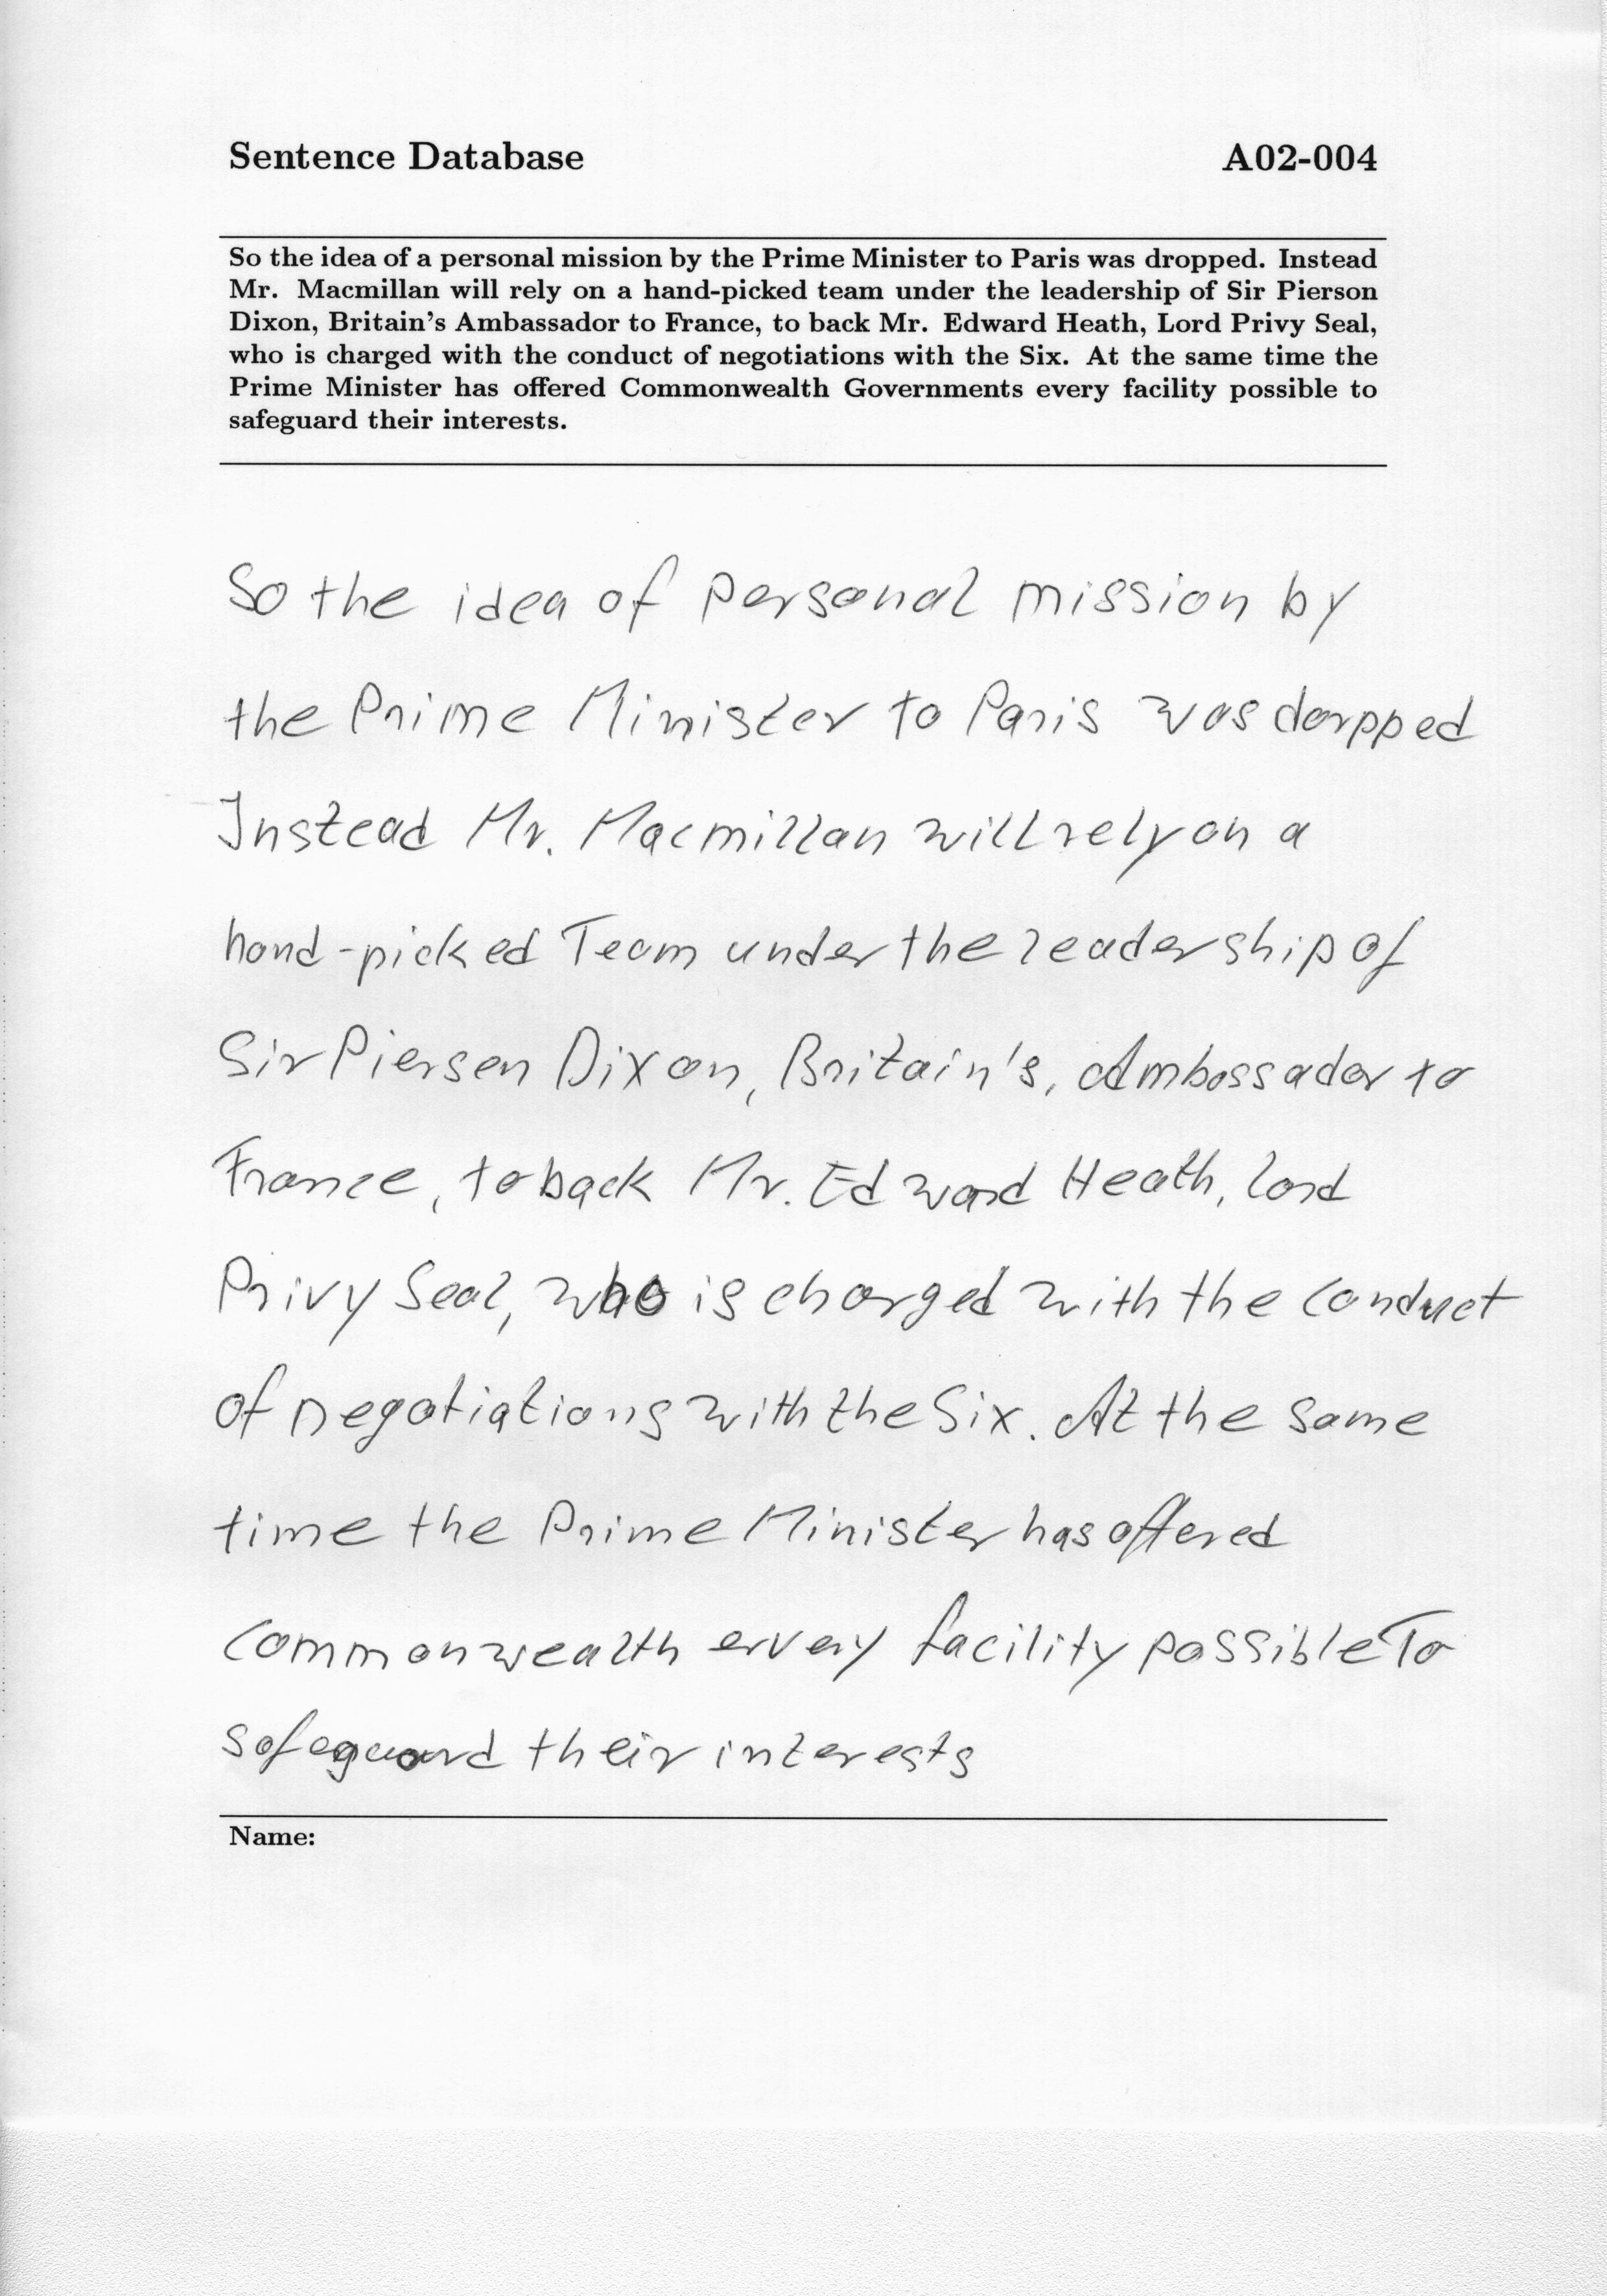 Sentence Database A02-004
So the idea of a personal mission by the Prime Minister to Paris was dropped. Instead
Mr. Macmillan will rely on a hand-picked team under the leadership of Sir Pierson
Dixon, Britain's Ambassador to France, to back Mr. Edward Heath, Lord Privy Seal,
who is charged with the conduct of negotiations with the Six. At the same time the
Prime Minister has offered Commonwealth Governments every facility possible to
safeguard their interests.
So the idea of personal mission by
the Prime Minister to Paris was dorpped
Instead Mr. Macmillan will rely on a
hand-picked Team under the leadership of
Sir Piersen Dixon, Britain's, Ambassador to
France, to back Mr. Edward Heath, lord
Privy Seal, who is charged with the conduct
of negotiations with the Six. At the same
time the Prime Minister has offered
commonwealth ervery facility possible To
safeguard their interests
Name: